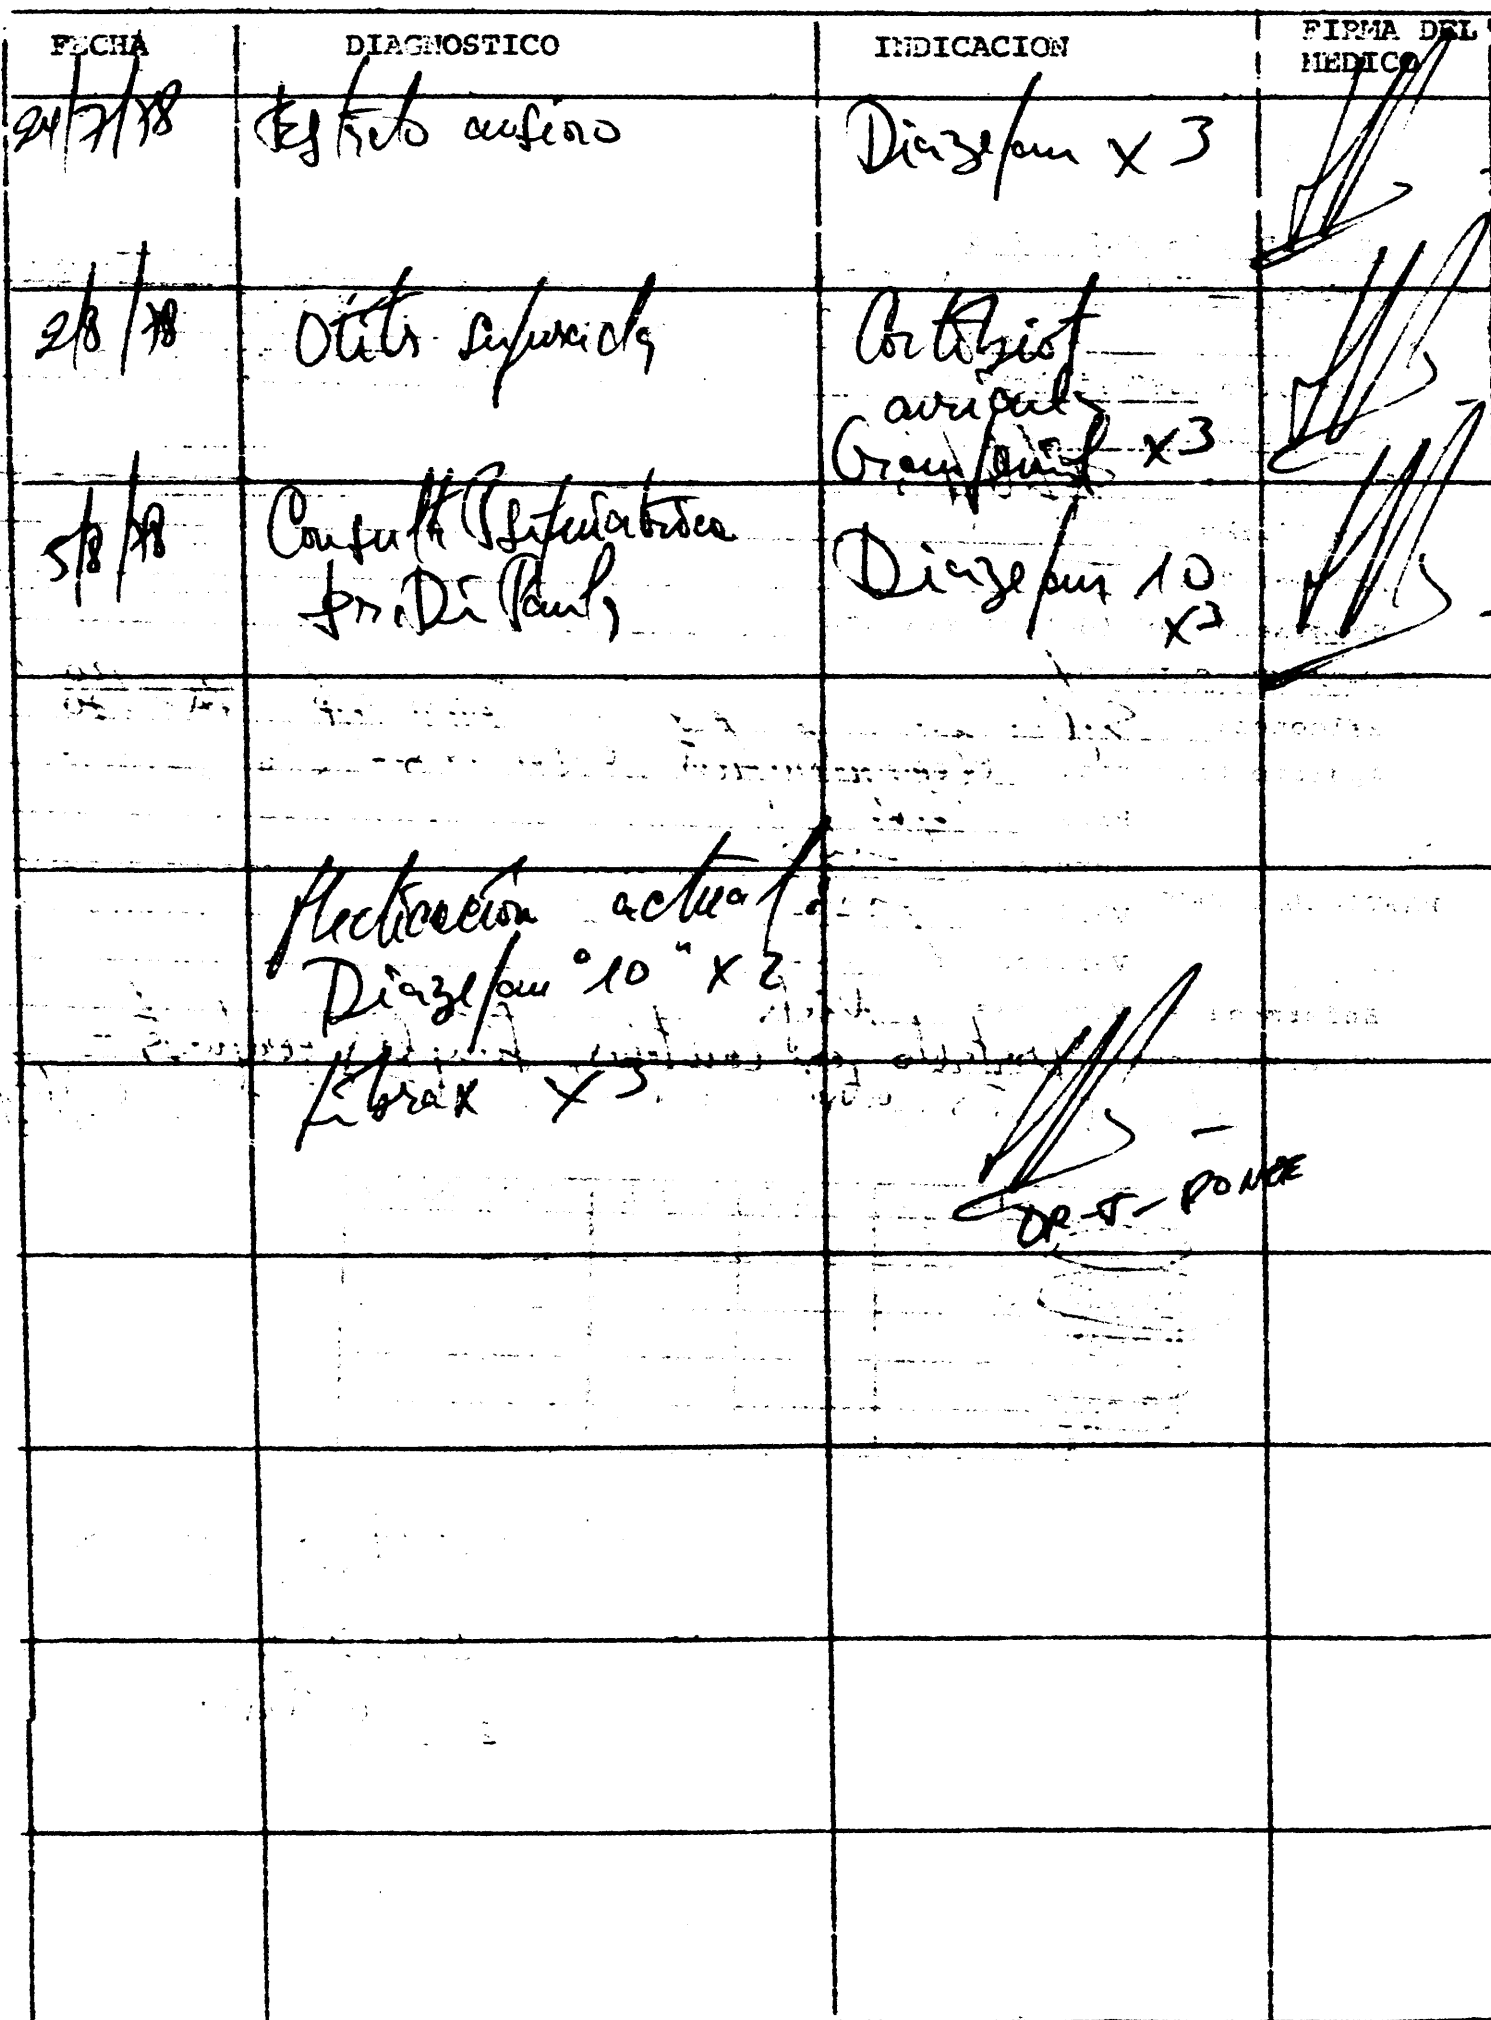 FECHA DIAGNOSTICO INDICACION FIRMA DEL MEDICO
24/7/78 Estado Diazepam x 3
2/8/78 Otitis supurada Cortibiot
auricular
x3
5/8/78 Consulta Psiquiatrica Diazepam 10
x3
Di Paula
Medicación actual:
Diazepam "10" x 2
Librax x 3
DR-J-PONCE